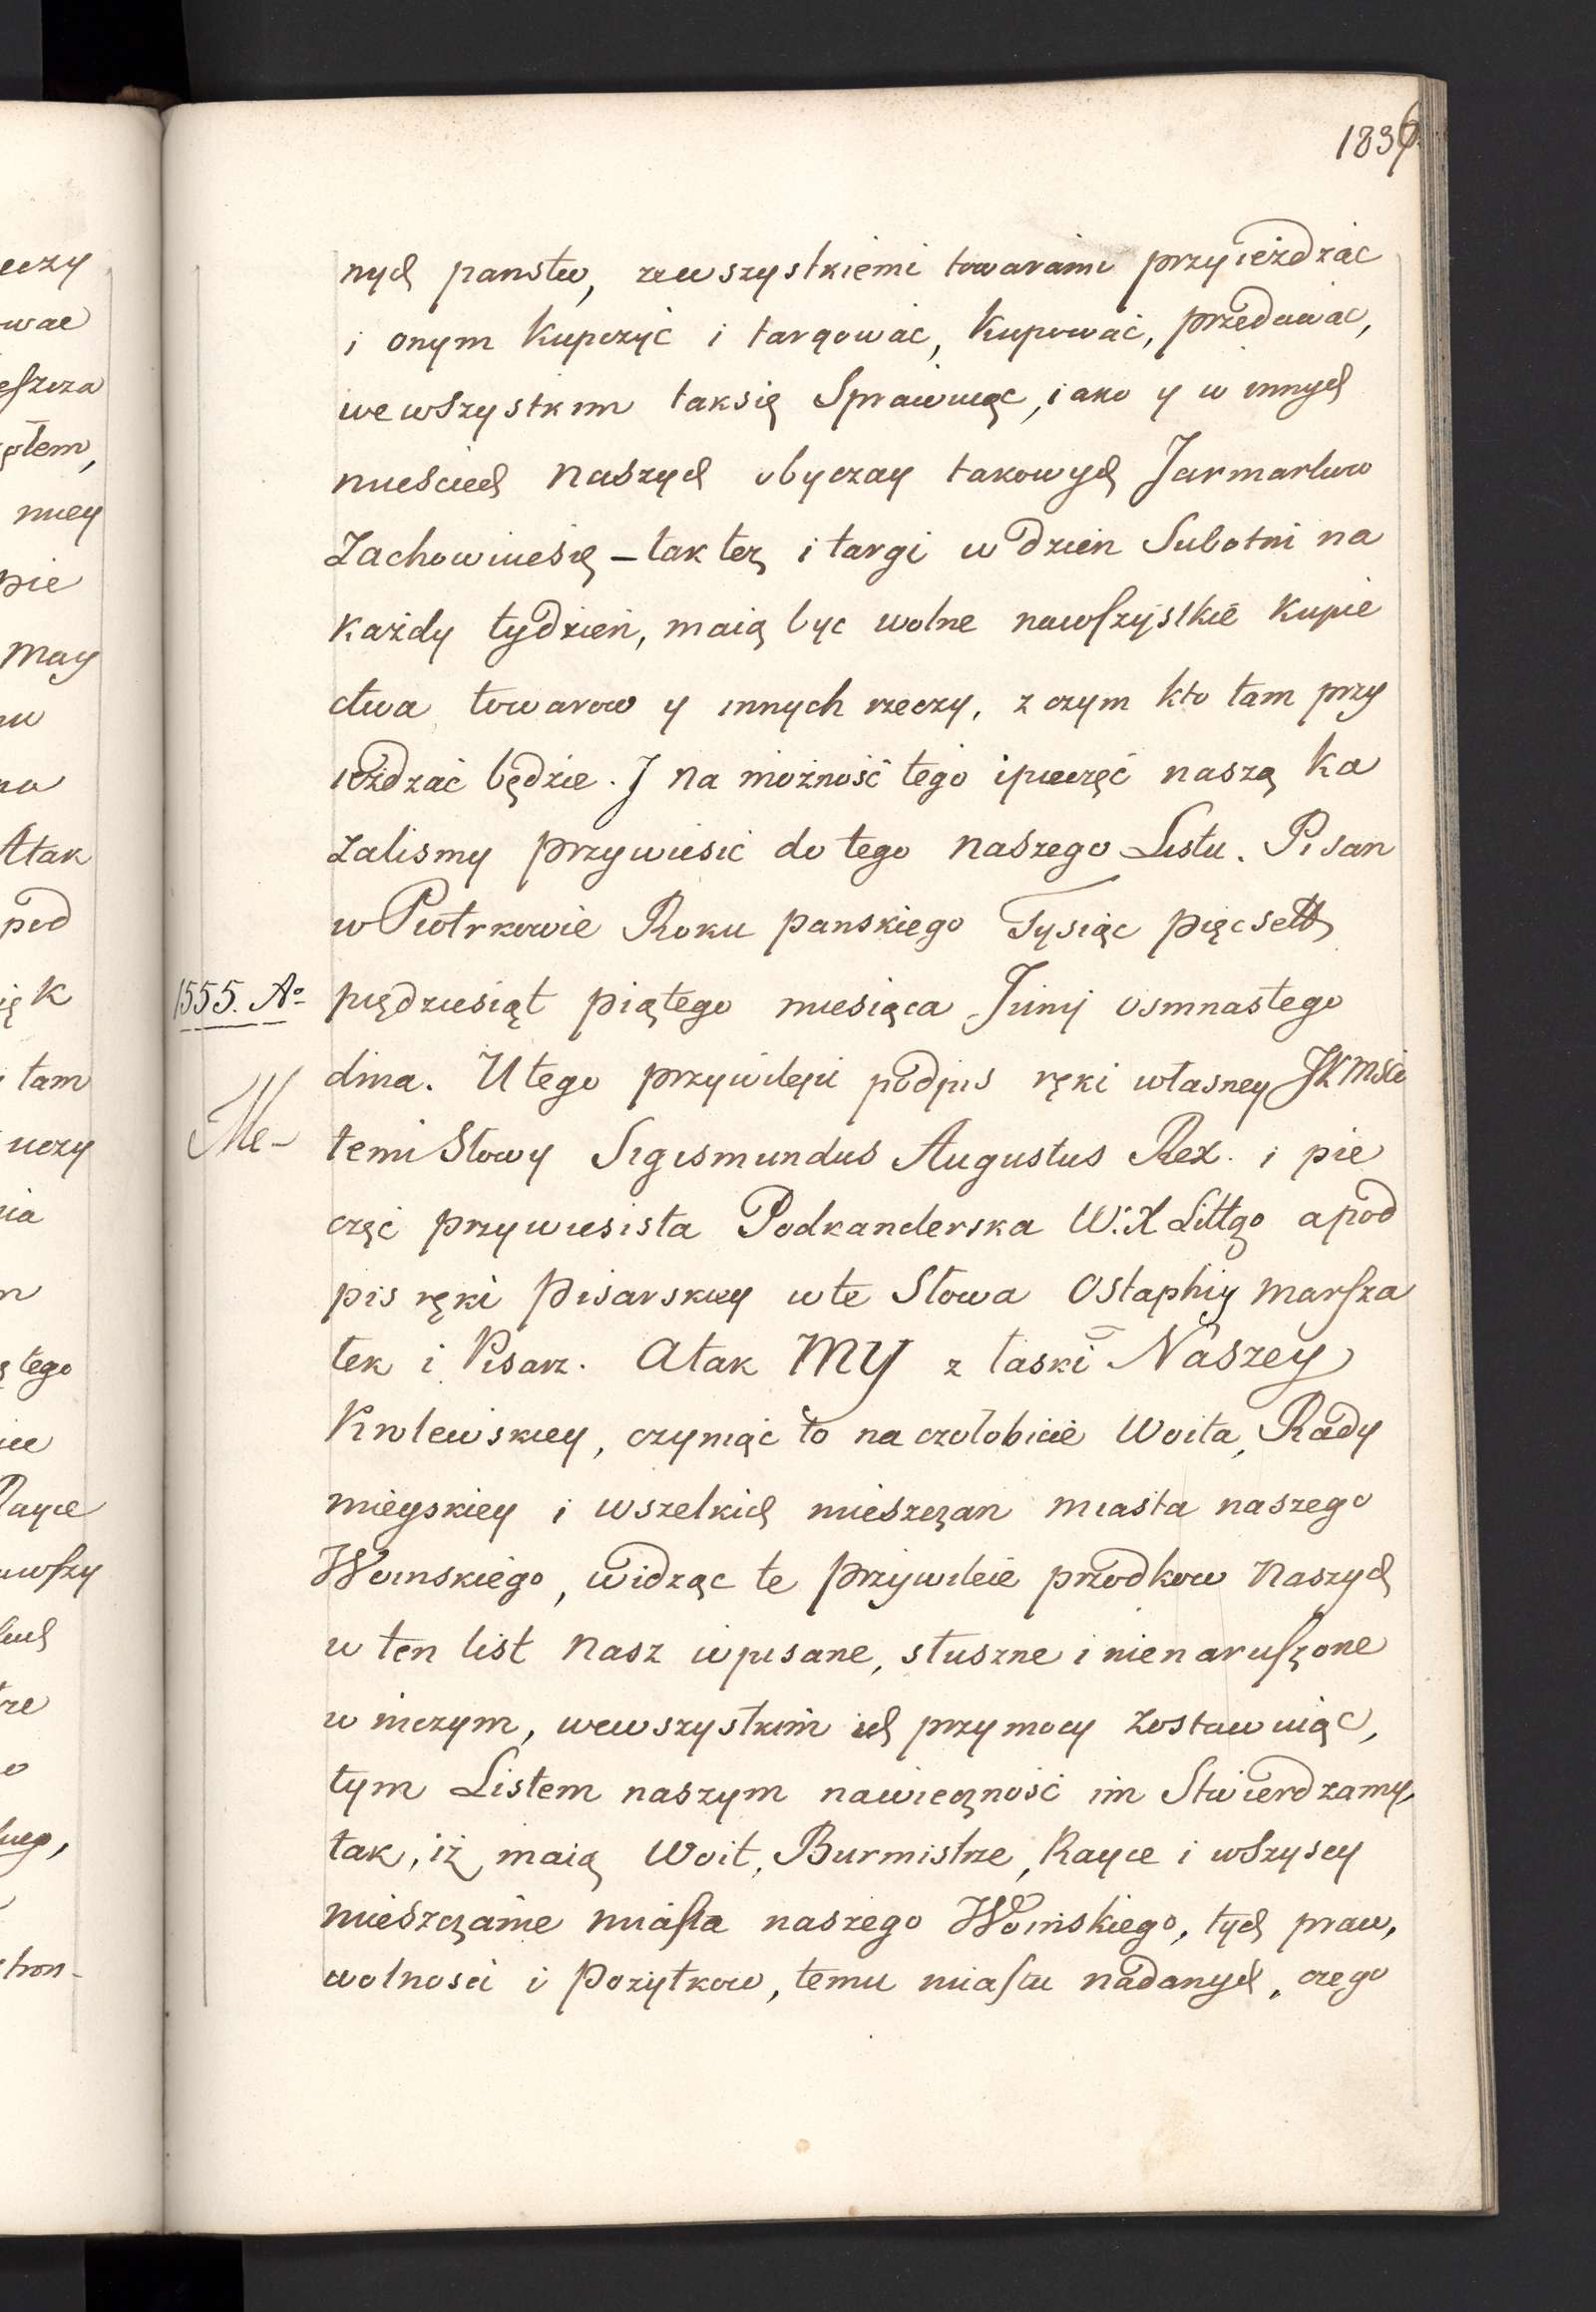 1836
nych panstw, zewszystkiemi towarami przyieżdzac
i onym kupczyć i targować, kupować, przedawać,
wewszystkim taksię Sprawuiąc, iako y w innych
mieściech naszych obyczay takowych Jarmarkow
zachowuiesię – tak też i targi w dzień Subotni na
każdy tydzień, maią być wolne nawszystkie kupie
ctwa towarow y innych rzeczy, z czym kto tam przy
ieżdzać będzie. J na możność tego ipieczęć naszą ka
zalismy przywiesić do tego naszego Listu. Pisan
w Piotrkowie Roku panskiego Tysiąc pięcsett
1555. Aº piędziesiąt piątego miesiąca Junij osmnastego
dnia. U tego przywileiu podpis ręki własney JKMści
Me- temi Słowy Sigismundus Augustus Rex. i pie
częć przywiesista Podkanclerska W: X Littgo apod
pis ręki pisarskiey wte Słowa Ostaphiy marsza
łek i Pisarz. Atak MY z łaski Naszey
Krolewskiey, czyniąc to na czołobicie Woita, Rady
mieyskiey i wszelkich mieszczan miasta naszego
Woinskiego, widząc te przywileie przodkow naszych
w ten list nasz wpisane, słuszne i nienaruszone
w niczym, wewszystkim ich przymocy zostawuiąc,
tym Listem naszym nawieczność im Stwierdzamy,
tak, iż maią Woit, Burmistrze, Rayce i wszyscy
mieszczanie miasta naszego Woinskiego, tych praw,
wolnosci i pożytkow, temu miastu nadanych, czego